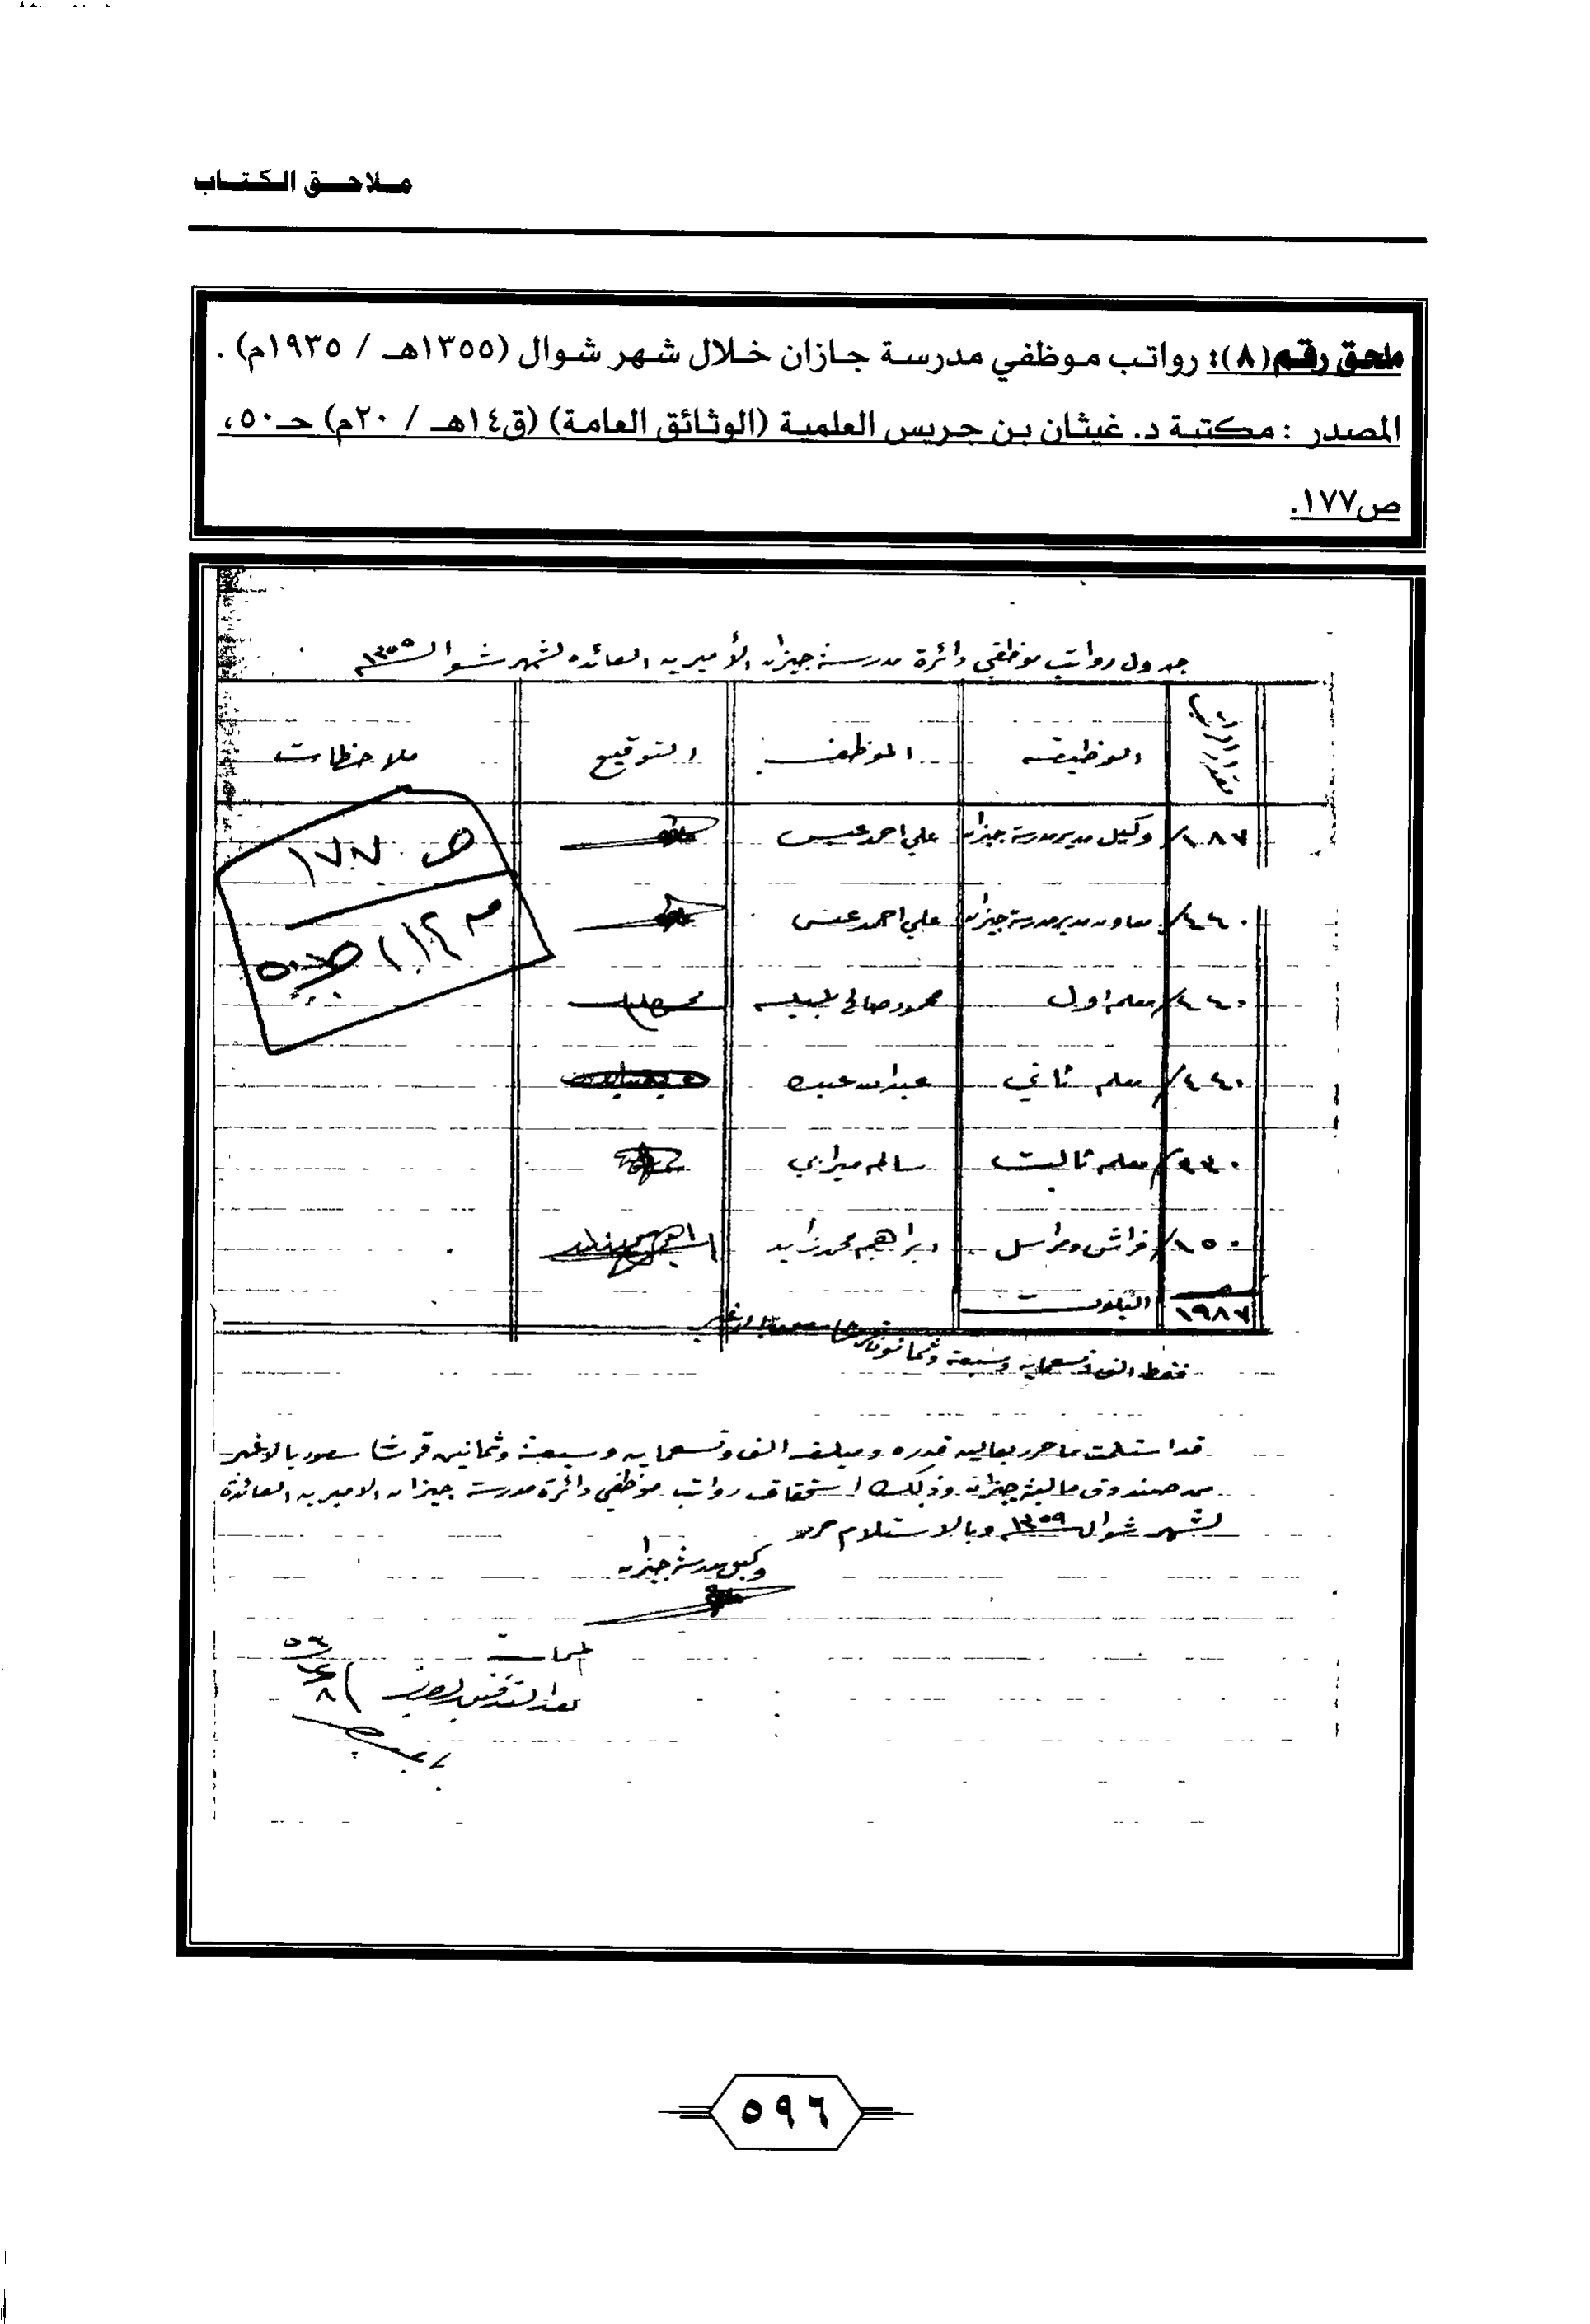 ملاحق الكتاب
ملحق رقم (٨): رواتب موظفي مدرسة جازان خلال شهر شوال (١٣٥٥هـ / ١٩٣٥م) .
المصدر : مكتبة د. غيثان بن جريس العلمية (الوثائق العامة) (ق١٤هـ / ٢٠م) حـ٥٠،
ص١٧٧.
جدول رواتب موظفي دائرة مدرسة جيزان الأميرية العائده لشهر شوال
مقدار الراتب الوظيفه الموظف التوقيع ملاحظات
١٨٧/ وكيل مدير مدرسة جيزان علي احمد عيسى
ص ١٧٧
٤٤٠/ معاون مدير مدرسة جيزان علي احمد عيسى
٤٤٠/ معلم اول محمود صالح
٤٤٠/ معلم ثاني عبدالله
٣٣٠/ معلم ثالث سالم ميرابي
١٥٠/ فراش ومراسل ابراهيم محمد زايد
١٩٨٧
فقط الف وتسعمايه وسبعة وثمانون قرشا سعوديا لا غير
قد استلمت ما حرر بعاليه قدره ومبلغه الف وتسعمايه وسبعة وثمانين قرشا سعوديا لا غير
من صندوق مالية جيزان وذلك استحقاق رواتب موظفي دائرة مدرسة جيزان الاميريه العائدة
لشهر شوال وبالاستلام حرر
وكيل مدرسة جيزان
٥٩٦